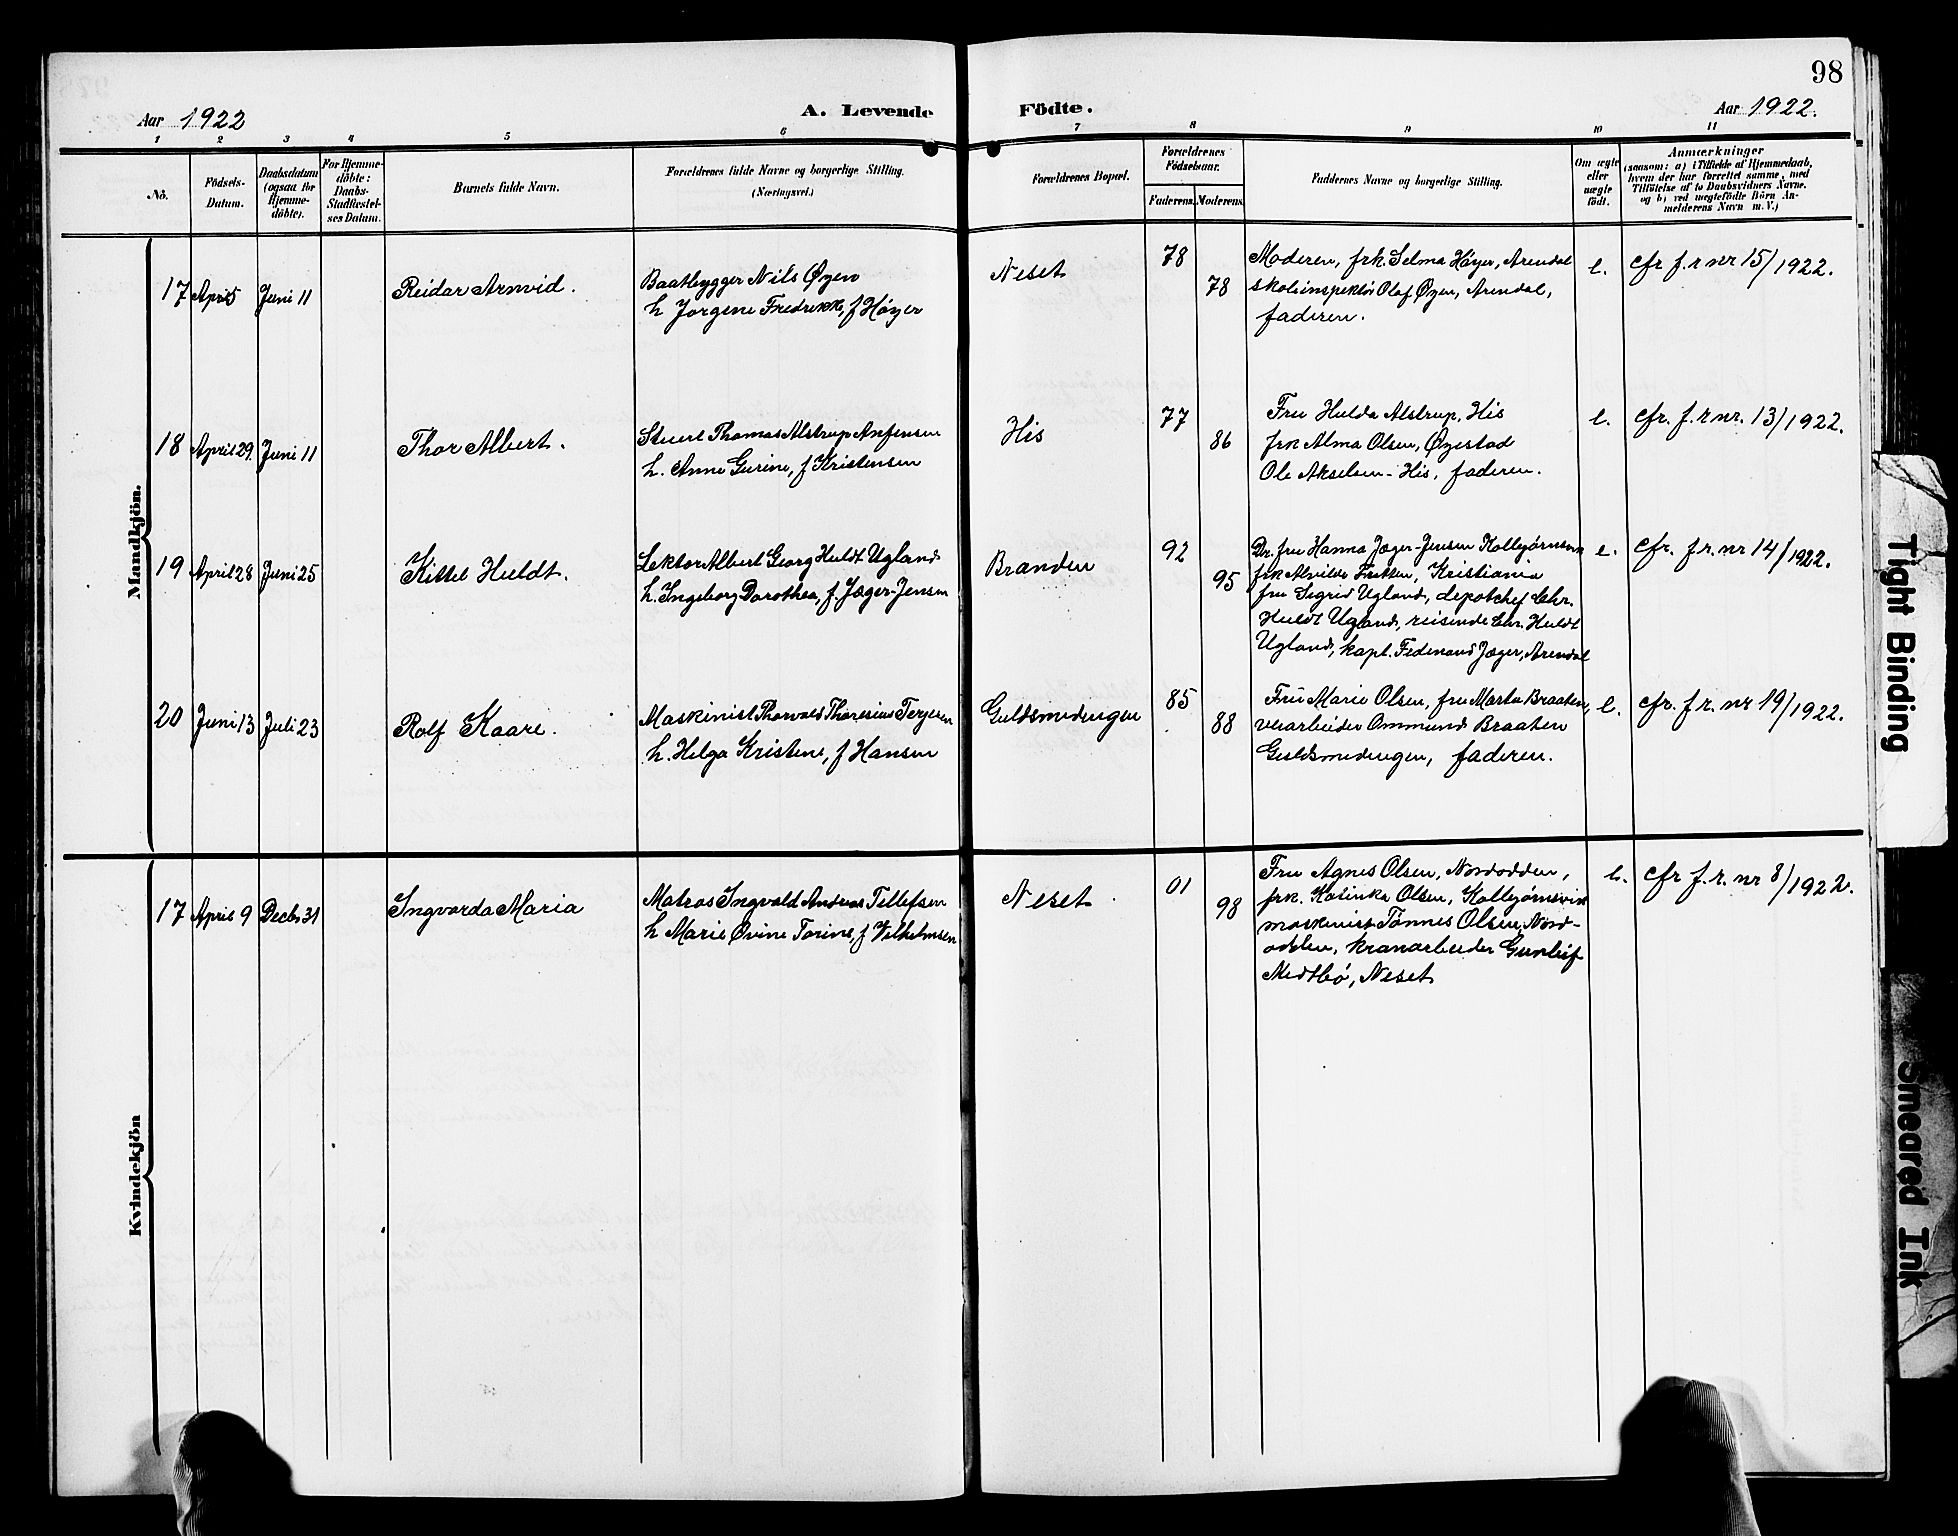 98
Aar 1922
A. Levende
Födte.
Aar 1922.
1 2 3 4 5 6 7 8 9 10 11
No.
Födsels-
Datum.
Daabsdatum
(ogsaa for
Hjemme-
döbte).
For Hjemme-
döbte:
Daabs-
Stadfæstel-
ses Datum.
Barnets fulde Navn.
Forældrenes fulde Navne og borgerlige Stilling.
(Næringsvei.)
Forældrenes Bopæl.
Forældrenes
Födselsaar.
Faderens.
Moderens.
Faddernes Navne og borgerlige Stilling.
Om ægte
eller
uægte
födt.
Anmærkninger
(saasom: a) i Tilfælde af Hjemmedaab,
hvem der har forrettet samme, med
Tilföielse af to Daabsvidners Navne.
og b) ved uægtefödte Börn An-
melderens Navn m. V.)
Mandkjön.
17 April 5 Juni 11
Reidar Arnvid.
Baatbygger Nils Øyen
h. Jørgene Fredrikk, f Høyer
Neset
78
78
Moderen, frk. Selma Høyer, Arendal
skoleinspektør Olaf Øyen, Arendal,
faderen.
e.
cfr f. r nr 15/1922.
18 April 29. Juni 11
Thor Albert.
Stuert Thomas Alstrup Anfensen
h. Anne Gurine, f Kristensen
His
77
86
Fru Hulda Alstrup, His
frk Alma Olsen, Øyestad
Ole Akselsen - His, faderen.
e.
cfr. f. r nr. 13/1922.
19 April 28 Juni 25
Kittel Huldt.
Lektor Albert Georg Huldt Ugland
h. Ingeborg Dorothea, f. Jæger-Jensen
Branden
92
95
Dr. fru Hanna Jæger-Jensen Kolbjørnsvik
frk Alvilde, Kristiania
fru Sigrid Ugland, depotchef Chr.
Huldt Ugland, reisende Chr. Huldt
Ugland, kapt. Ferdinand Jæger, Arendal
e.
cfr. f. r. nr 14/1922.
20 Juni 13 Juli 23
Rolf Kaare.
Maskinist Thorvald Thoresius Terjesen
h. Helga Kristene, f Hansen
Guldsmedengen
85
88
Fru Marie Olsen, fru Marta Braaten,
veiarbeider Ommund Braaten
Guldsmedengen, faderen.
e.
cfr. f. r. nr 19/1922.
Kvindekjön
17 April 9 Decbr 31
Ingvarda Maria
Matros Ingvald Andreas Tellefsen
h Marie Øvine Torine, f Vilhelmsen
Neset
01
98
Fru Agnes Olsen, Nordodden,
frk. Kasinka Olsen, Kolbjørnsvik
maskinist Tønnes Olsen, Nord-
odden, kranarbeider Gunleif
Medtbø, Neset
e.
cfr f. r. nr 8/1922.
Tight Binding
Smeared Ink